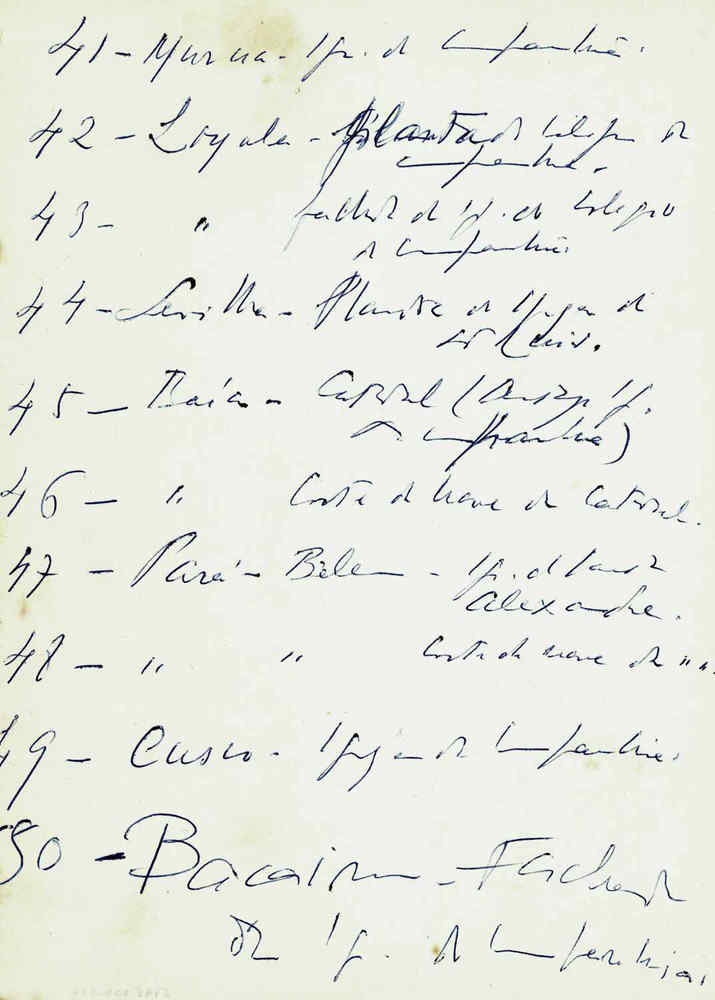 41 - Murcia - Ig. da Companhia.
42 - Loyola - Planta do Colégio da
Companhia.
43 - " fachada da Ig. do Colégio
da Companhia.
44 - Sevilha - Planta da Igreja de
S. Luis.
45 - Baía - Catedral (Antiga Ig.
da Companhia)
46 - " Corte da nave da Catedral.
47 - Pará - Belem - Ig. de Santo
Alexandre.
48 - " " Corte da nave da " ".
49 - Cusco - Igreja da Companhia.
50 - Bacaim - Fachada
da Ig. da Companhia.